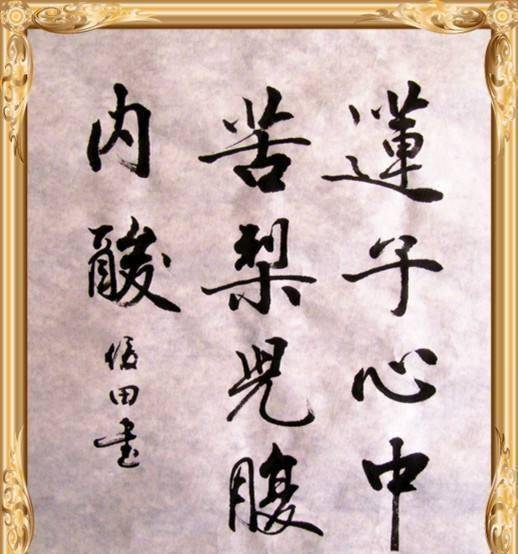 蓮子心中
苦梨兒腹
内酸
俊田書